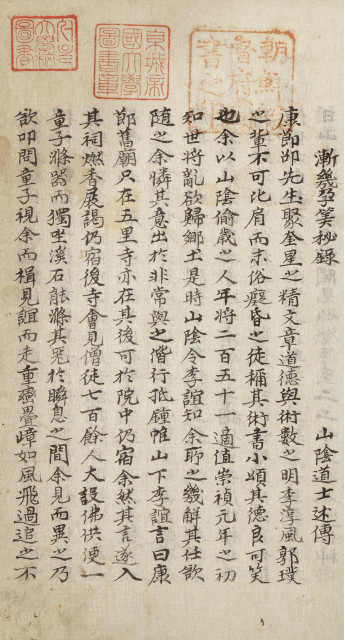 漸幾孕笑秘錄
山陰道士述傳
康節邵先生聚奎星之精文章道德與術數之明李淳風郭璞
之輩不可比肩而末俗癡昏之徒稱其術書小頌其德良可笑
也余以山陰偷歲之人年將二百五十一適值崇禎元年之初
知世將亂欲歸鄉土是時山陰令李誼知余耶之幾解其任欲
隨之余憐其意出於非常與之偕行抵鍾帷山下李誼言曰康
郎舊廟只在五里寺亦在其後可於院中仍宿余然其言遂入
其祠燃香展謁仍宿後寺會見僧徒七百餘人大設佛供便一
童子滌器而獨坐溪石能滌其器於瞬息之間余見而異之乃
欲叩問童子視余而楫見誼而走重巒疊嶂如風飛過追之不
京城帝國大學圖書章